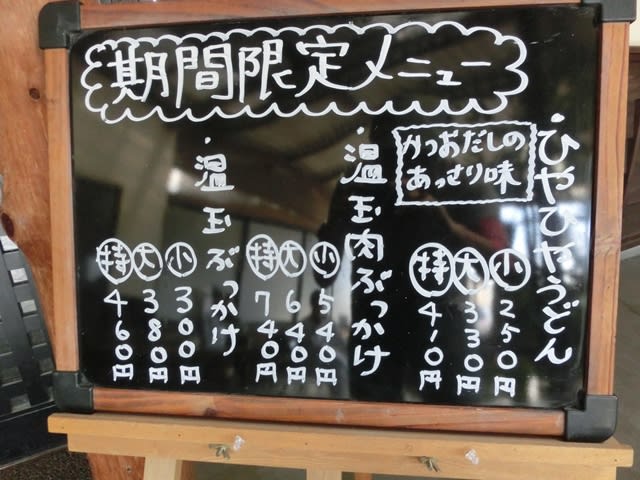 期間限定メニュー
・ひやひやうどん
かつおだしの
あっさり味
小 250円
大 330円
特 410円
・温玉肉ぶっかけ
小 540円
大 640円
特 740円
・温玉ぶっかけ
小 300円
大 380円
特 460円